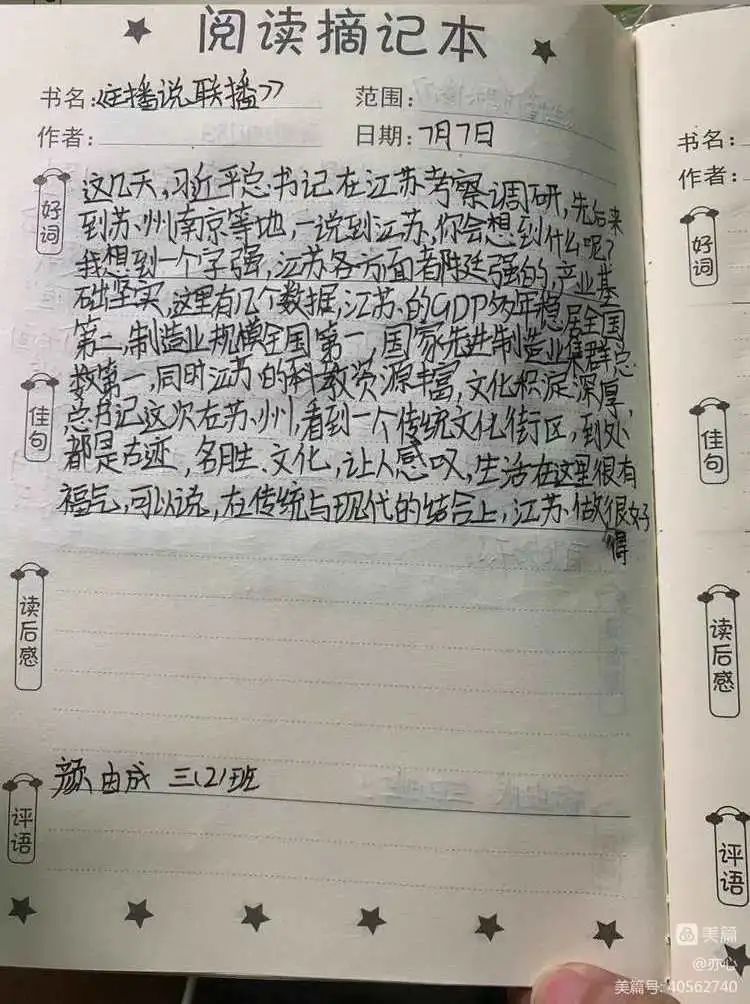 阅读摘记本
书名:主播说联播》
范围:
作者:
日期:7月7日
好词
这几天,习近平总书记在江苏考察调研,先后来
到苏州南京等地,一说到江苏,你会想到什么呢?
我想到一个字强,江苏各方面都挺强的,产业基
础坚实,这里有几个数据,江苏的GDP多年稳居全国
第二,制造业规模全国第一,国家先进制造业集群总
数第一,同时江苏的科教资源丰富,文化积淀深厚,
佳句
总书记这次在苏州,看到一个传统文化街区,到处
都是古迹,名胜、文化,让人感叹,生活在这里很有
福气,可以说,在传统与现代的结合上,江苏做很好
得
读后感
颜由成 三(2)班
评语
书名:
作者:
好词
佳句
读后感
评语
美篇
@亦心
美篇号:40562740